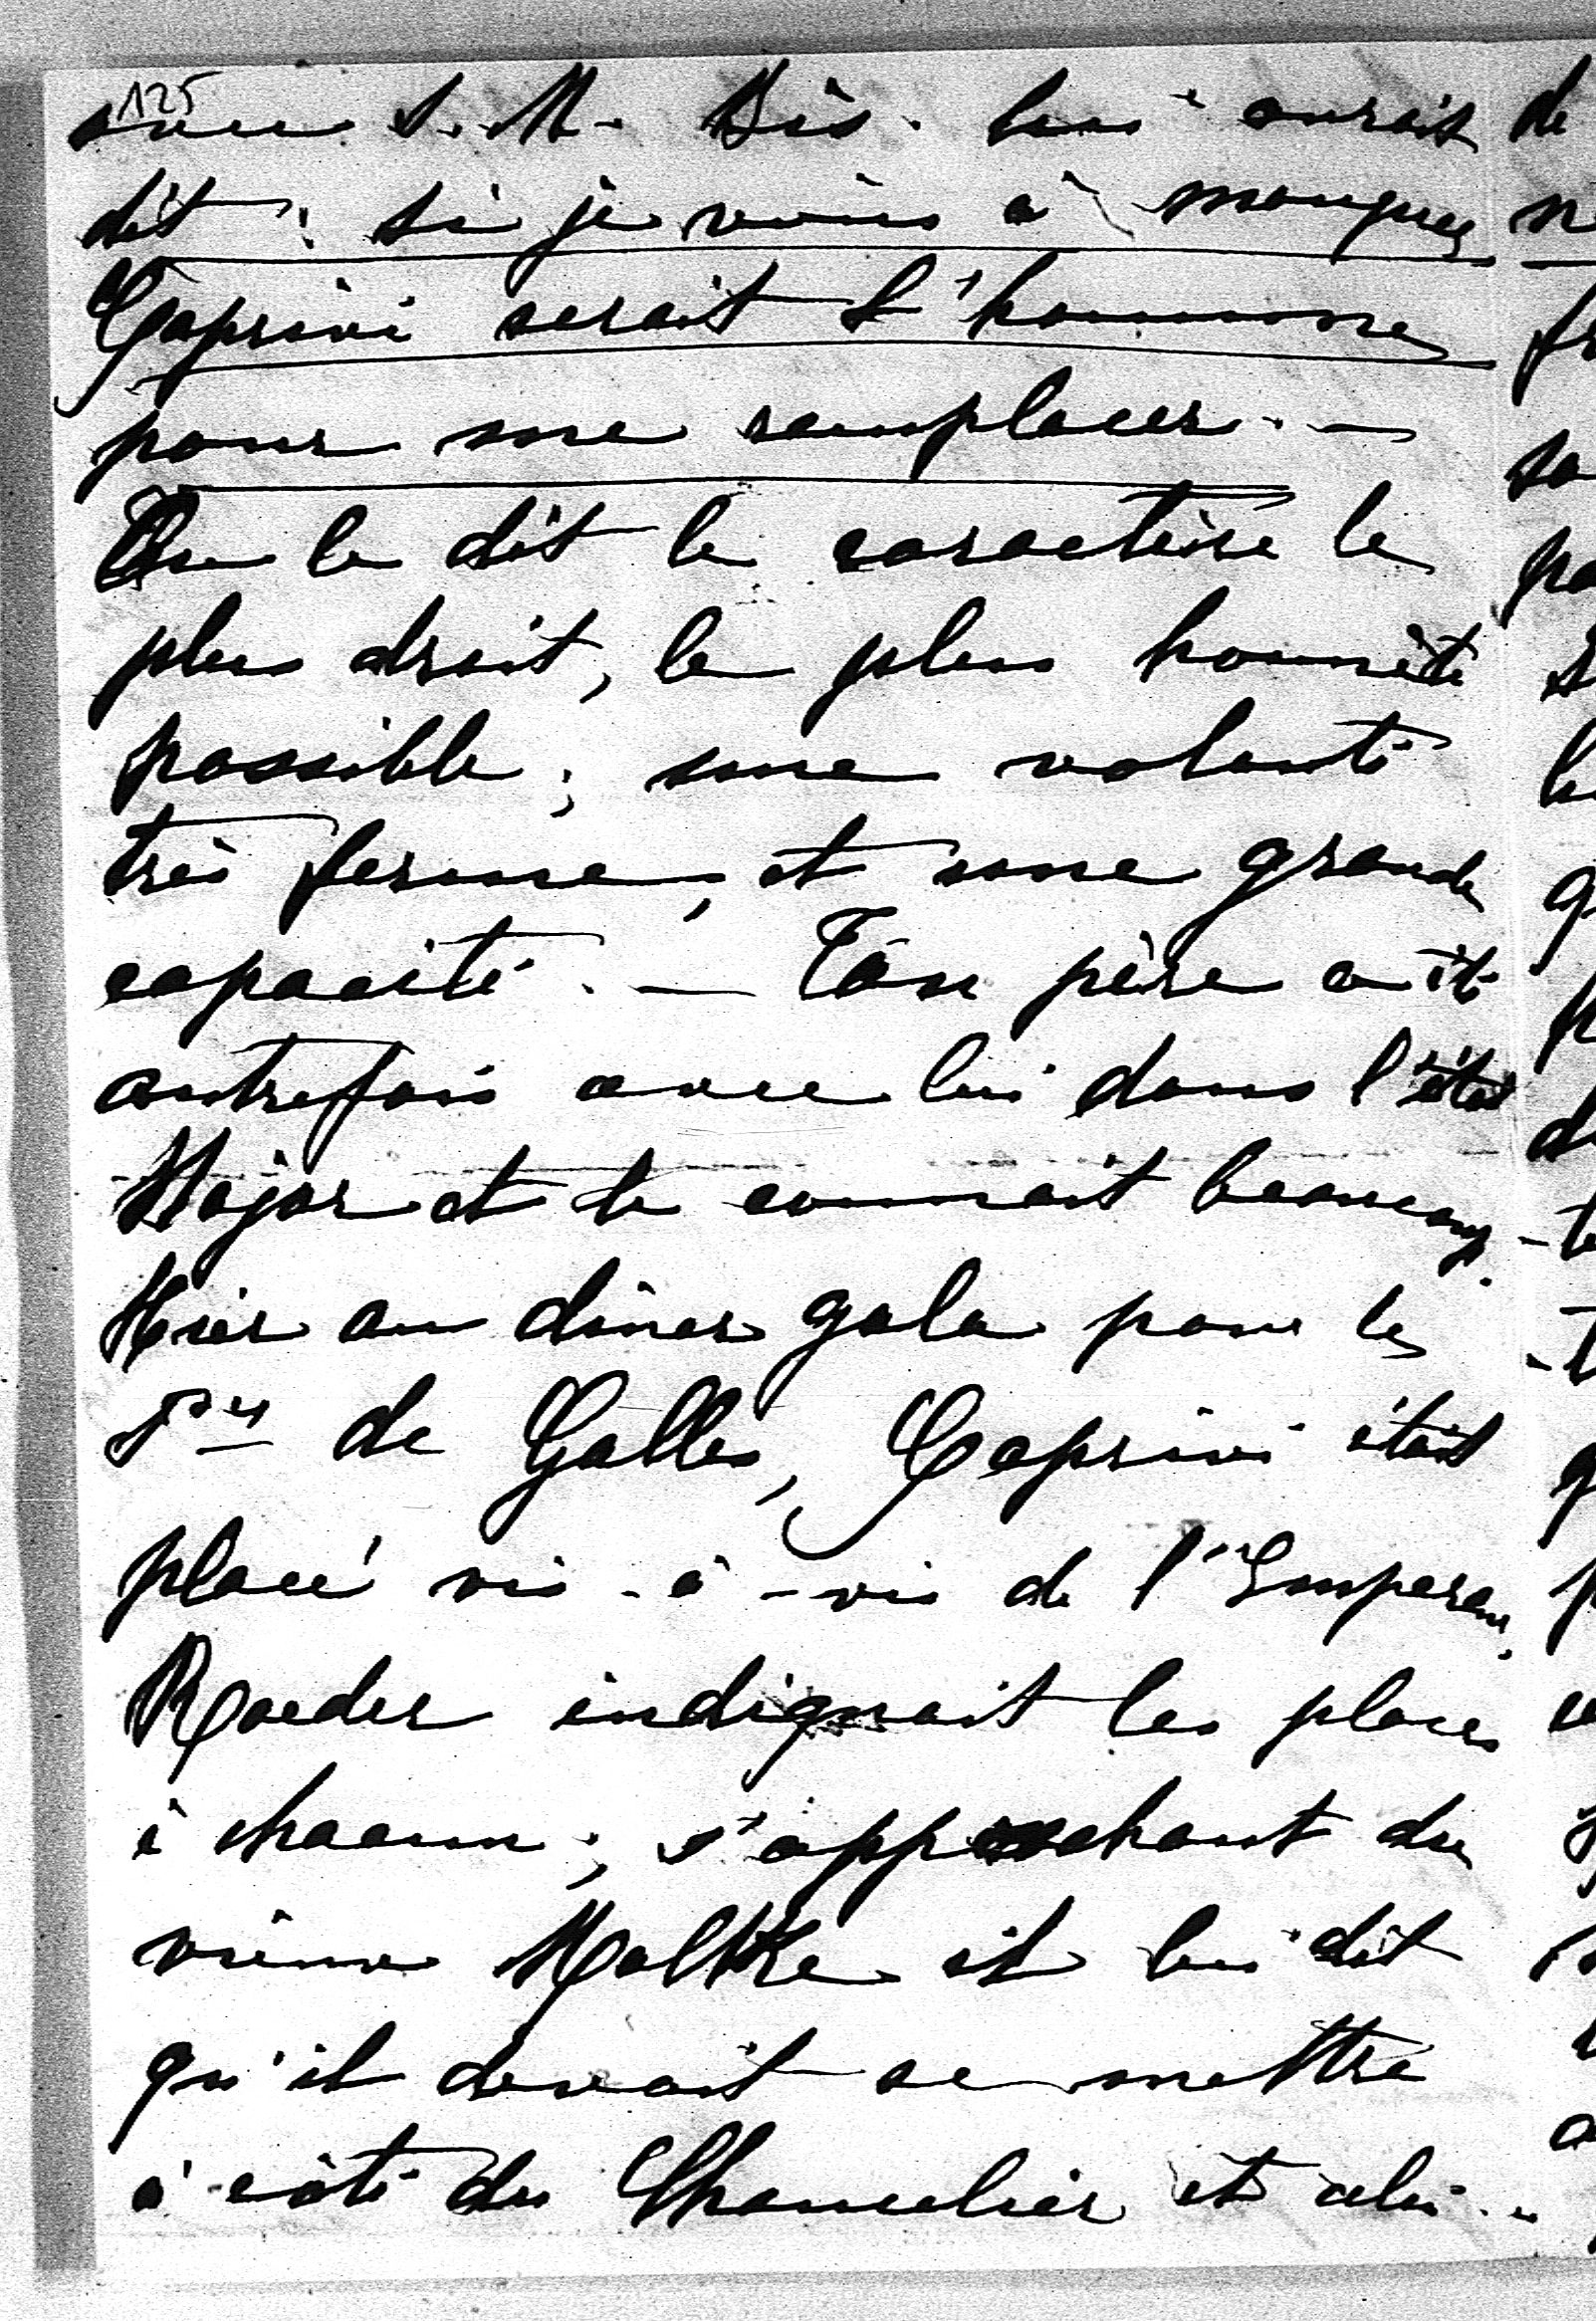 125
avec S. M. Bis. lui aurait
dit : si je viens à manquer
Caprivi serait l'homme
pour me remplacer. —
On le dit le caractère le
plus droit, le plus honnête
possible ; une volonté
très ferme, et une grande
capacité. — Ton père a été
autrefois avec lui dans l'état
Major et le connait beaucoup.
Hier au dîner gala pour le
Pce de Galles, Caprivi était
placé vis-à-vis de l'Empereur.
Roeder indiquait les places
à chacun ; s'approchant du
vieux Moltke il lui dit
qu'il devait se mettre
à côté du Chancelier et celui-